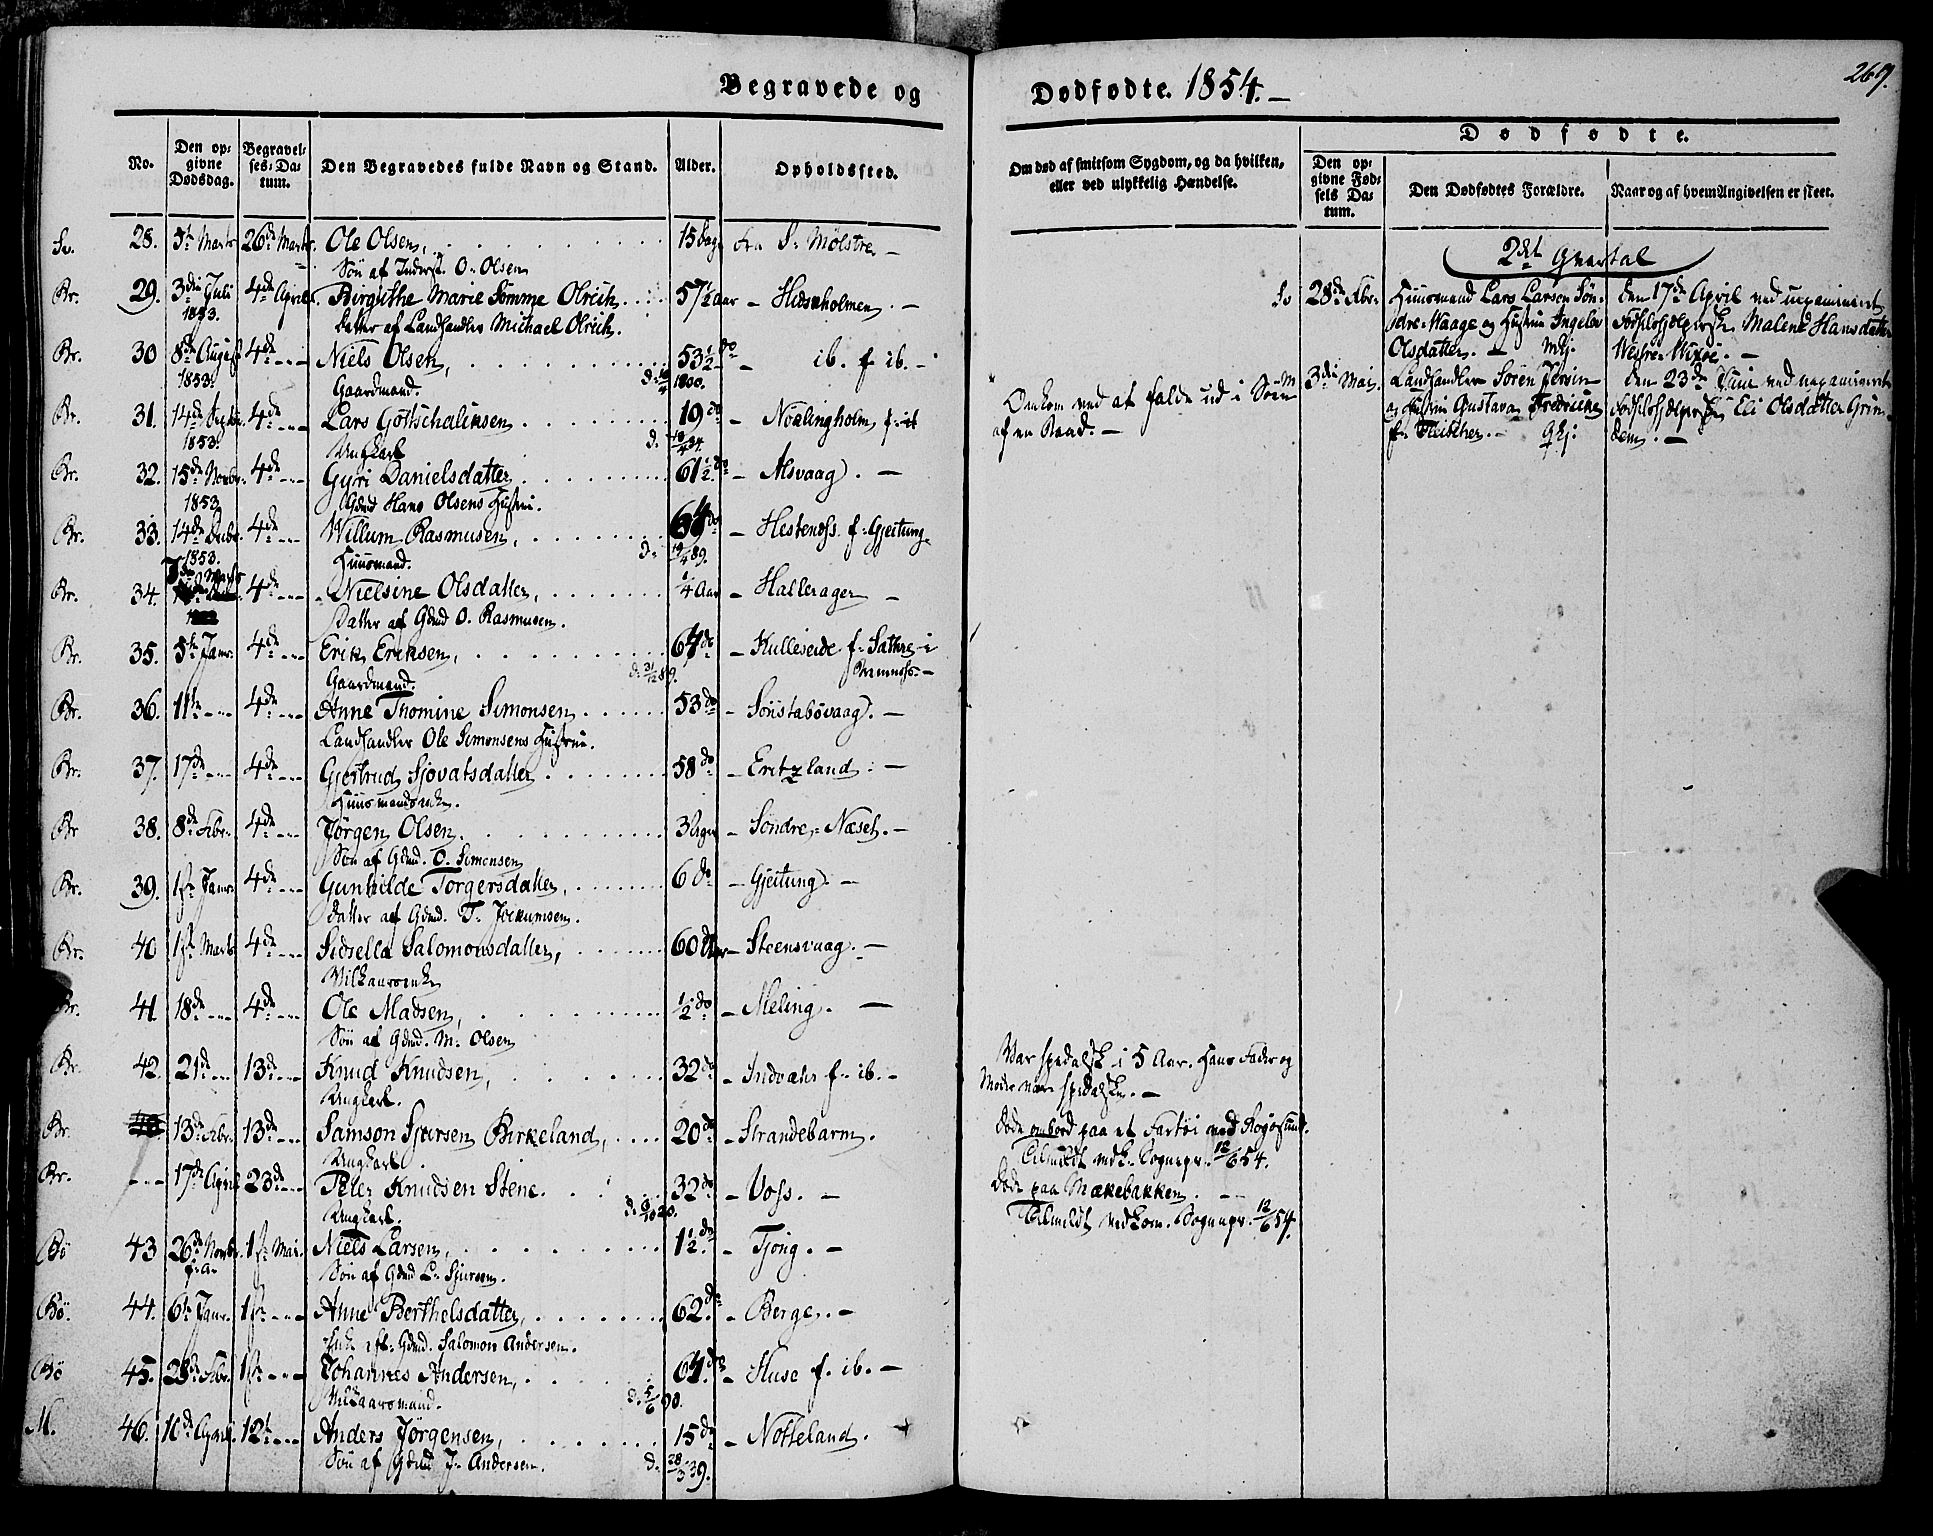 269.
Begravede og
Dødfødte. 1854.
No.
Den opgivne Dødsdag.
Begravelses-Datum.
Den Begravedes fulde Navn og Stand.
Alder.
Opholdssted.
Om død af smitsom Sygdom, og da hvilken,
eller ved ulykkelig Hændelse.
Dødfødte.
Den opgivne Fødsels Datum.
Den Dødfødtes Forældre.
Naar og af hvem Angivelsen er skeet.
28. 26de Marts. Ole Olsen, 15 Dage fra S. Mølstre
Søn af Inderst. O. Olsen
Br. 29. 3die Juli 4de April. Birgithe Marie Sømme Olrich. 57½ Aar - Hidsholmen. -
1853.
Datter af Landhandler Michael Olrich.
Br. 30 8de August 4de Niels Olsen, 53½ do - ib. f. ib. -
1853. Gaardmand. 1800.
Br. 31. 14de 4de Lars Gottschalksen 19 do - f. ib
1853. Ungkarl d.
Br. 32. 15de Novbr. 4de Gyri Danielsdatter 61½ do - Alsvaag. -
1853. Gdmd Hans Olsens Hustru.
Br. 33. 14de Decbr. 4de Willum Rasmusen, 64 do - Hestenæss. f. Gjeitung
1853. Huusmand. d. 19/4 89.
Br. 34. 4de Nielsine Olsdatter, ¼ Aar - Hallerager -
Datter af Gdmd O. Rasmusen.
Br. 35. 5te Janr. 4de Erik Eriksen, 64 do - Kulleseide f. Sathre i
Gaardmand. d. 31/12 89. Bremnæss. -
Br. 36. 11te 4de Anne Thomine Simonsen 53 do - Sønstabøvaag. -
Landhandler Ole Simonsens Hustru.
Br. 37. 17de 4de Gjertrud Sjovatsdatter 58 do - Eritzland. -
Huusmandsenke.
Br 38. 8de Febr. 4de Jørgen Olsen. 3 Uger - Søndre-Næset. -
Søn af Gdmd. O. Simonsen
Br. 39. 1ste Janr. 4de Gunhilde Torgersdatter, 6 do - Gjeitung. -
Datter af Gdmd. T. Jockumsen.
Br. 40 1ste Marts 4de Sidsella Salomonsdatter, 60 Aar - Steensvaag. -
Vilkaarsenke
Br. 41 18de 4de Ole Madsen, ½ do - Meling. -
Søn af Gdmd. M. Olsen
Br. 42. 21de 13de Knud Knudsen, 32 do - Indvær f. ib. -
Ungkarl.
Br. 13de Febr. 13de Samson Sjursen Birkeland, 20 do - Strandebarm.
Ungkarl.
Br. 17de April 23de Peter Knudsen Stene. 32 do - Voss. -
Ungkarl.
Bö 43 26de Novbr. 1ste Mai. Niels Larsen, 1½ do - Tjong. -
f. a. Søn af Gdmd L. Sjursen.
Bö. 44. 6te Janr. 1ste Anne Berthelsdatter, 62 do - Berge. -
Enke eft. Gdmd. Salomon Andersen.
Bö 45. 28de Febr. 1ste Johannes Andersen, 64 do - Huse f. ib. -
Vilkaarsmand. d. 5/6 90.
M. 46. 10de April. 12te Anders Jørgensen, 15 do - Notteland.
Søn af Gdmd J. Andersen. d. 28/3 39.
Omkom ved at falde ud i Søen
af en Baad. -
Var spedalsk i 5 Aar. Hans Fader og
Moder var spedalske. -
Døde ombord paa et Fartøi ved Røgøsund.
Tilmeldt vedk. Sognepr. 12/6 54.
Døde paa Mækebakken.
Tilmeldt vedkom. Sognepr. 12/6 54.
2det Qvartal
28de Febr. Huusmand Lars Larsen Søndre-Waage og Hustru Ingebor
Olsdatter. -
den 17de April ved uexamineret
Malene Hansdatter
3die Mai. Landhandler Søren Jersin
og Hustru Gustava Fredricke
f. Fleischer. -
den 23de Juni ved uexamineret
Eli Olsdatter Grindem. -